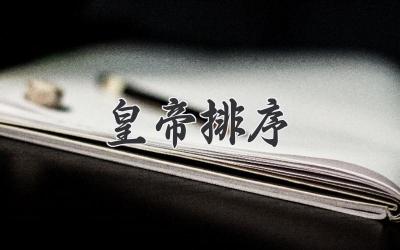 皇帝排序